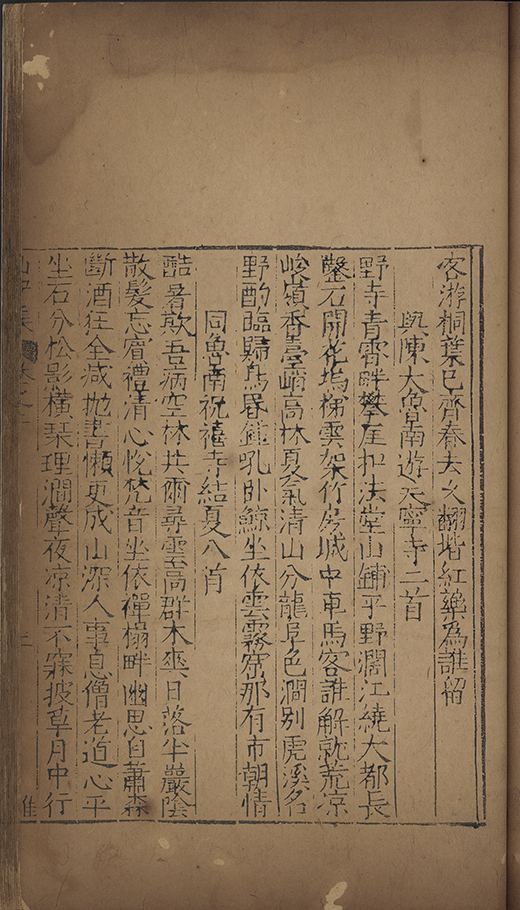 客游桐葉已齊春去又翻堦紅藥為誰留
與陳大魯南遊天寧寺二首
野寺青霄畔攀厓扣法堂山鋪平野濶江繞大都長
鑿石開花塢梯雲架竹房城中車馬客誰解就荒凉
峻嶺香臺峭高林夏氣清山分龍阜色澗別虎溪名
野酌臨歸鳥昏鐘吼卧鯨坐依雲霧窟那有市朝情
同魯南祝禧寺結夏八首
酷暑欺吾病空林共爾尋雲高群木爽日落半巖陰
散髮忘賓禮清心悅梵音坐依禪榻畔幽思自蕭森
斷酒狂全减抛書懶更成山深人事息僧老道心平
坐石分松影橫琴理澗聲夜凉清不寐披草月中行